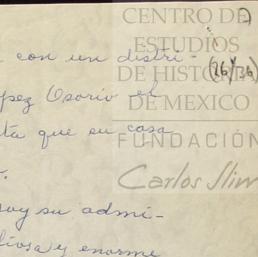 CENTRO DE
ESTUDIOS
con un distri-
(26/36)
DE HISTORIA
pez Osorio el
DE MEXICO
ta que su casa
FUNDACIÓN
Carlos Slim
soy su admi-
y enorme